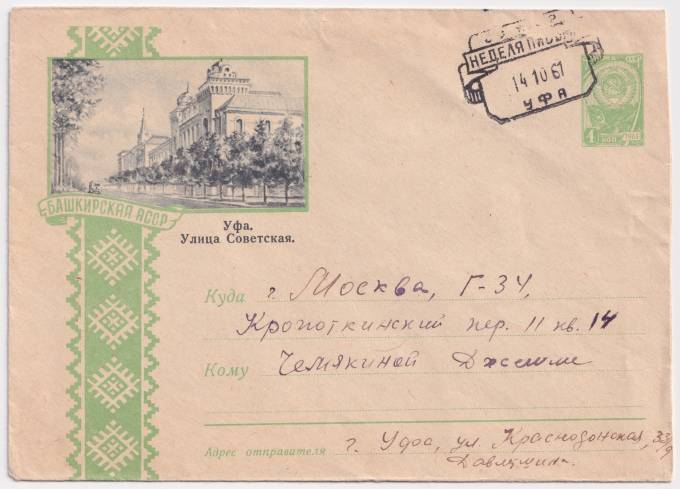 НЕДЕЛЯ ПИСЬМА
14 10 61
УФА
4 КОП 1961
БАШКИРСКАЯ АССР
Уфа.
Улица Советская.
Куда г. Москва, Г-34,
Кропоткинский пер. 11 кв. 14
Кому Чемякиной
Адрес отправителя г. Уфа, ул. Краснодонская, 33/9